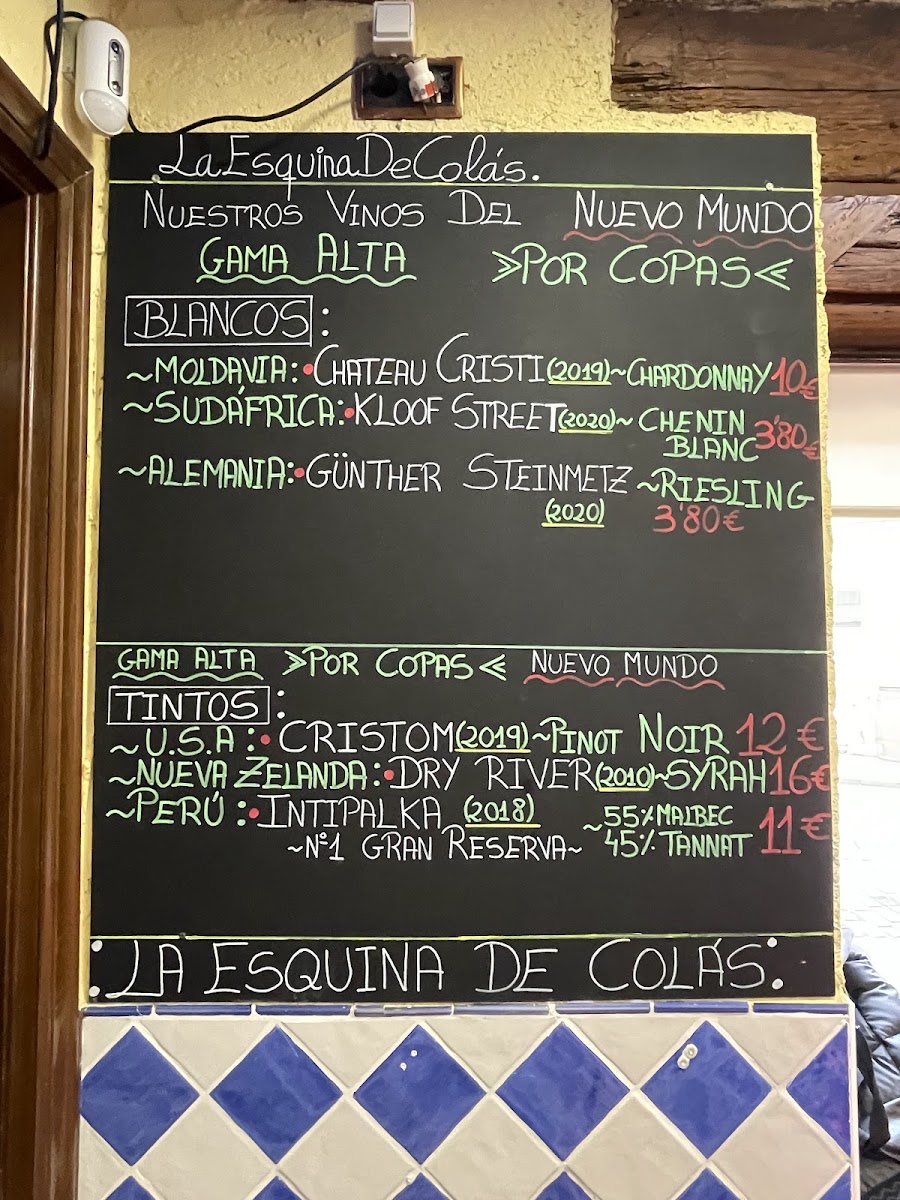 LaEsquinaDeColás.
NUESTROS VINOS DEL NUEVO MUNDO
GAMA ALTA >>POR COPAS<<
BLANCOS:
~MOLDAVIA:•CHATEAU CRISTI(2019)~CHARDONNAY 10€
~SUDÁFRICA:•KLOOF STREET(2020)~CHENIN
BLANC 3'80€
~ALEMANIA:•GÜNTHER STEINMETZ~RIESLING
(2020) 3'80€
GAMA ALTA >>POR COPAS<< NUEVO MUNDO
TINTOS:
~U.S.A:•CRISTOM(2019)~PINOT NOIR 12€
~NUEVA ZELANDA:•DRY RIVER(2010)~SYRAH 16€
~PERÚ:•INTIPALKA (2018) ~55%MALBEC
~Nº1 GRAN RESERVA~ 45% TANNAT 11€
LA ESQUINA DE COLÁS.